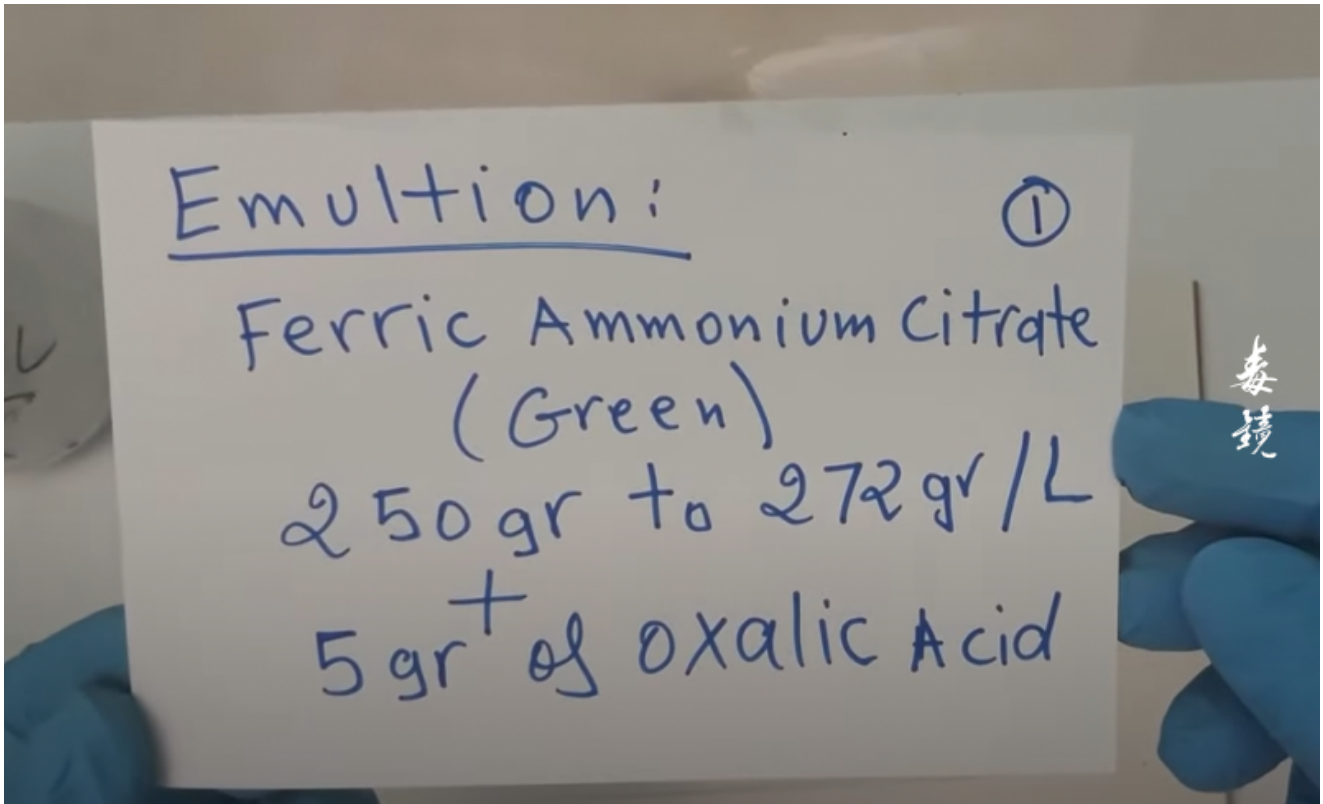 Emultion:
①
Ferric Ammonium Citrate
(Green)
250gr to 272gr/L
+
5gr of oxalic Acid
毒鏡